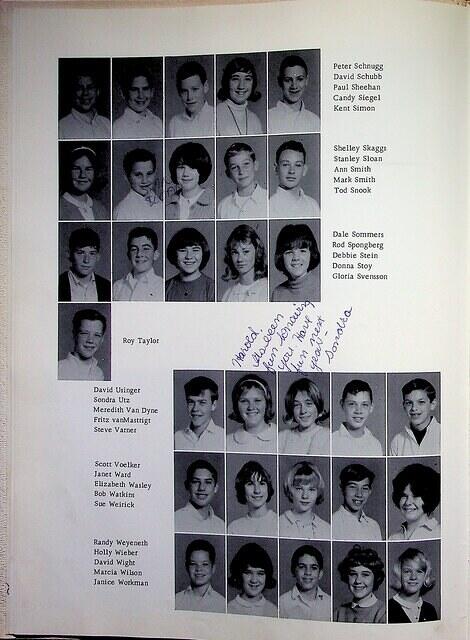 Peter Schnugg
David Schubb
Paul Sheehan
Candy Siegel
Kent Simon
Shelley Skaggs
Stanley Sloan
Ann Smith
Mark Smith
Tod Snook
Dale Sommers
Rod Spongberg
Debbie Stein
Donna Stoy
Gloria Svensen
Roy Taylor
Harold,
Its been
fun knowing
you. Have
fun next
year-
Sondra
David Usinger
Sondra Utz
Meredith Van Dyne
Fritz vanMastrigt
Steve Varner
Scott Voelker
Janet Ward
Elizabeth Wasley
Bob Watkins
Sue Weirick
Randy Weyeneth
Holly Wieber
David Wight
Marcia Wilson
Janice Workman